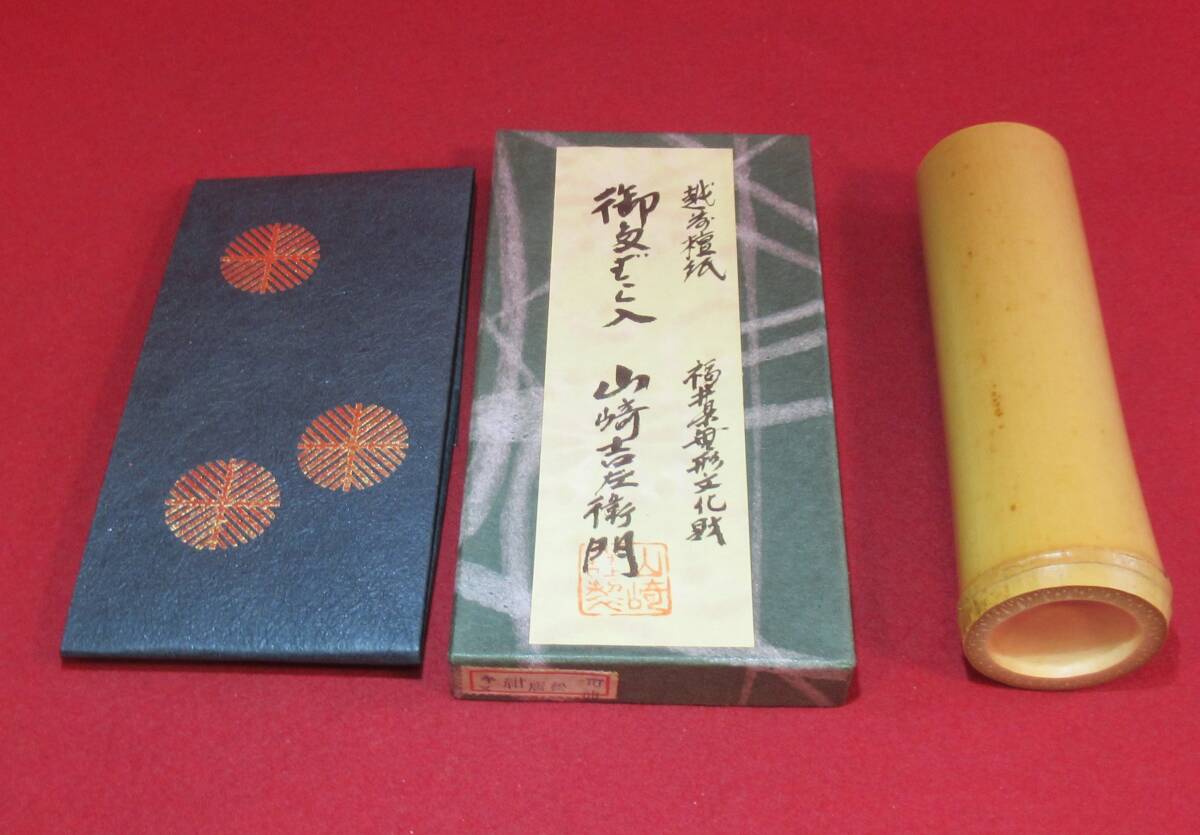 越前檀紙
福井県無形文化財
御文ばこ入
山崎吉左衛門
山崎
謹製